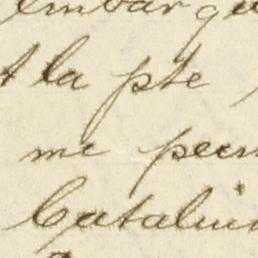 embarqu
la pte
me perm
Catalin